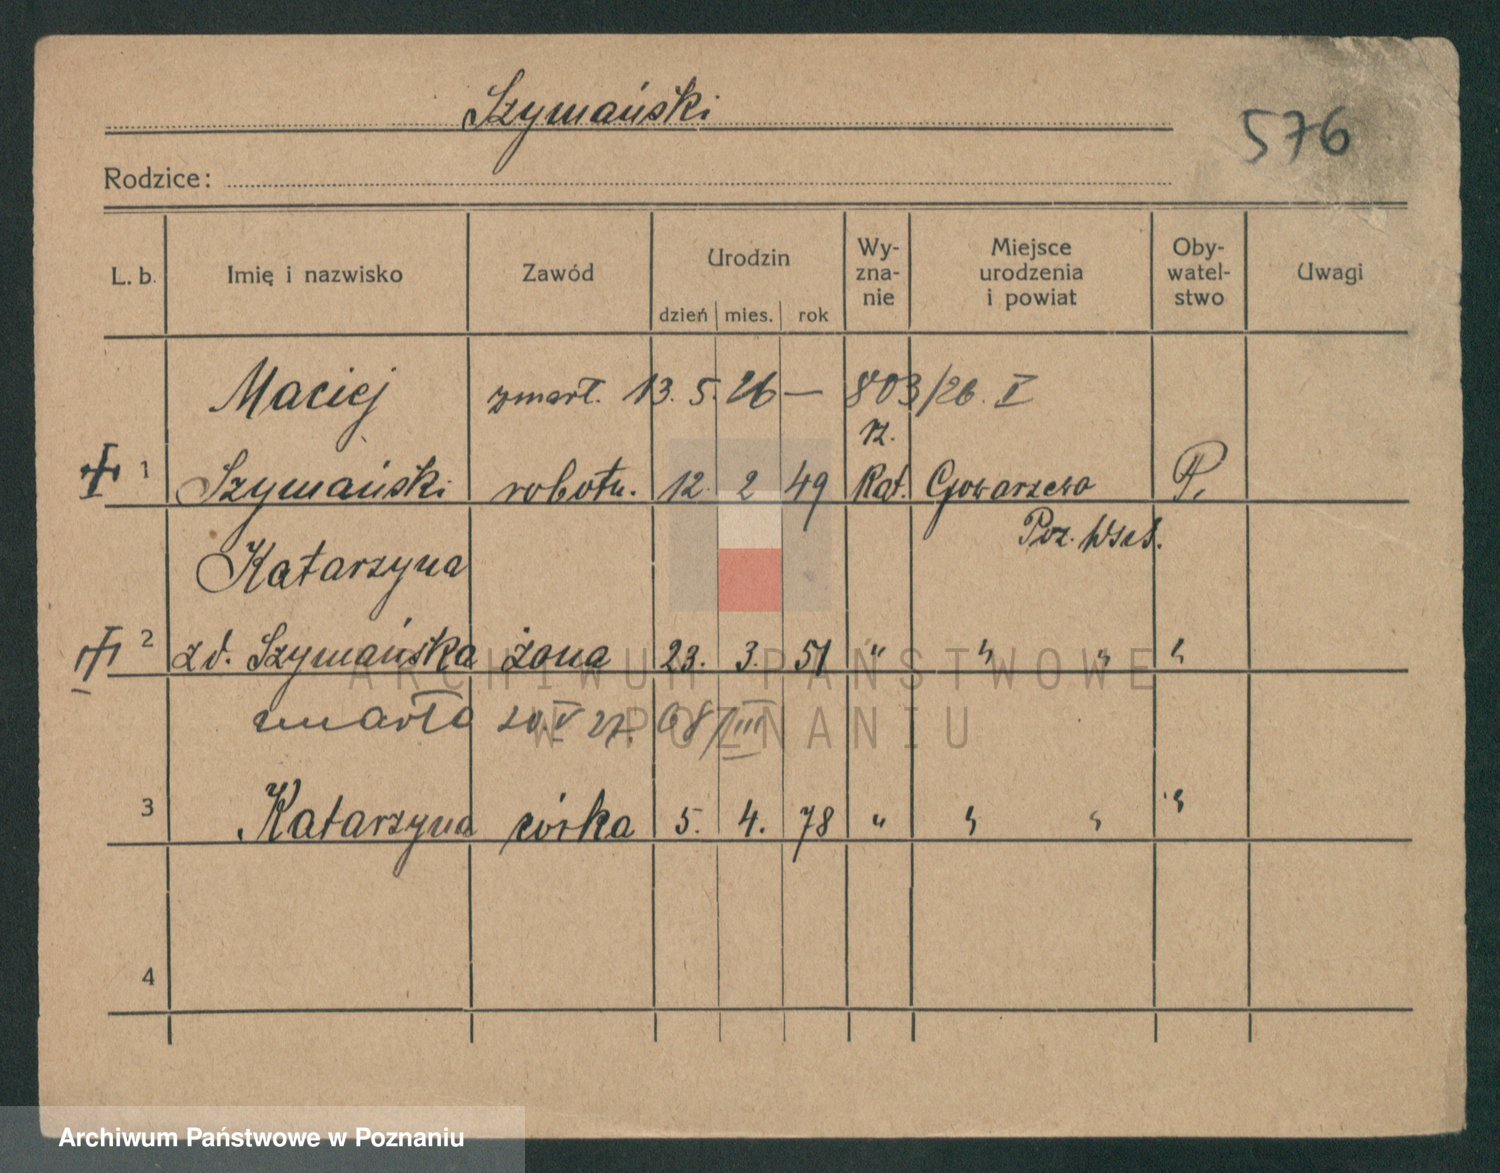 Szymański
576
Rodzice:
L. b. Imię i nazwisko Zawód Urodzin dzień mies. rok Wy-zna-nie Miejsce urodzenia i powiat Oby-watel-stwo Uwagi
Maciej zmarł. 13. 5. 26 — 803/26. V
rz.
1 Szymański robotn. 12. 2 49 Kat. Gowarzewo P.
Katarzyna Poz. Wsch.
2 zd. Szymańska żona 23. 3. 51 " " " "
umarła 20.V 27. 68/III
3 Katarzyna córka 5. 4. 78 " " " "
4
ARCHIWUM PAŃSTWOWE
W POZNANIU
Archiwum Państwowe w Poznaniu